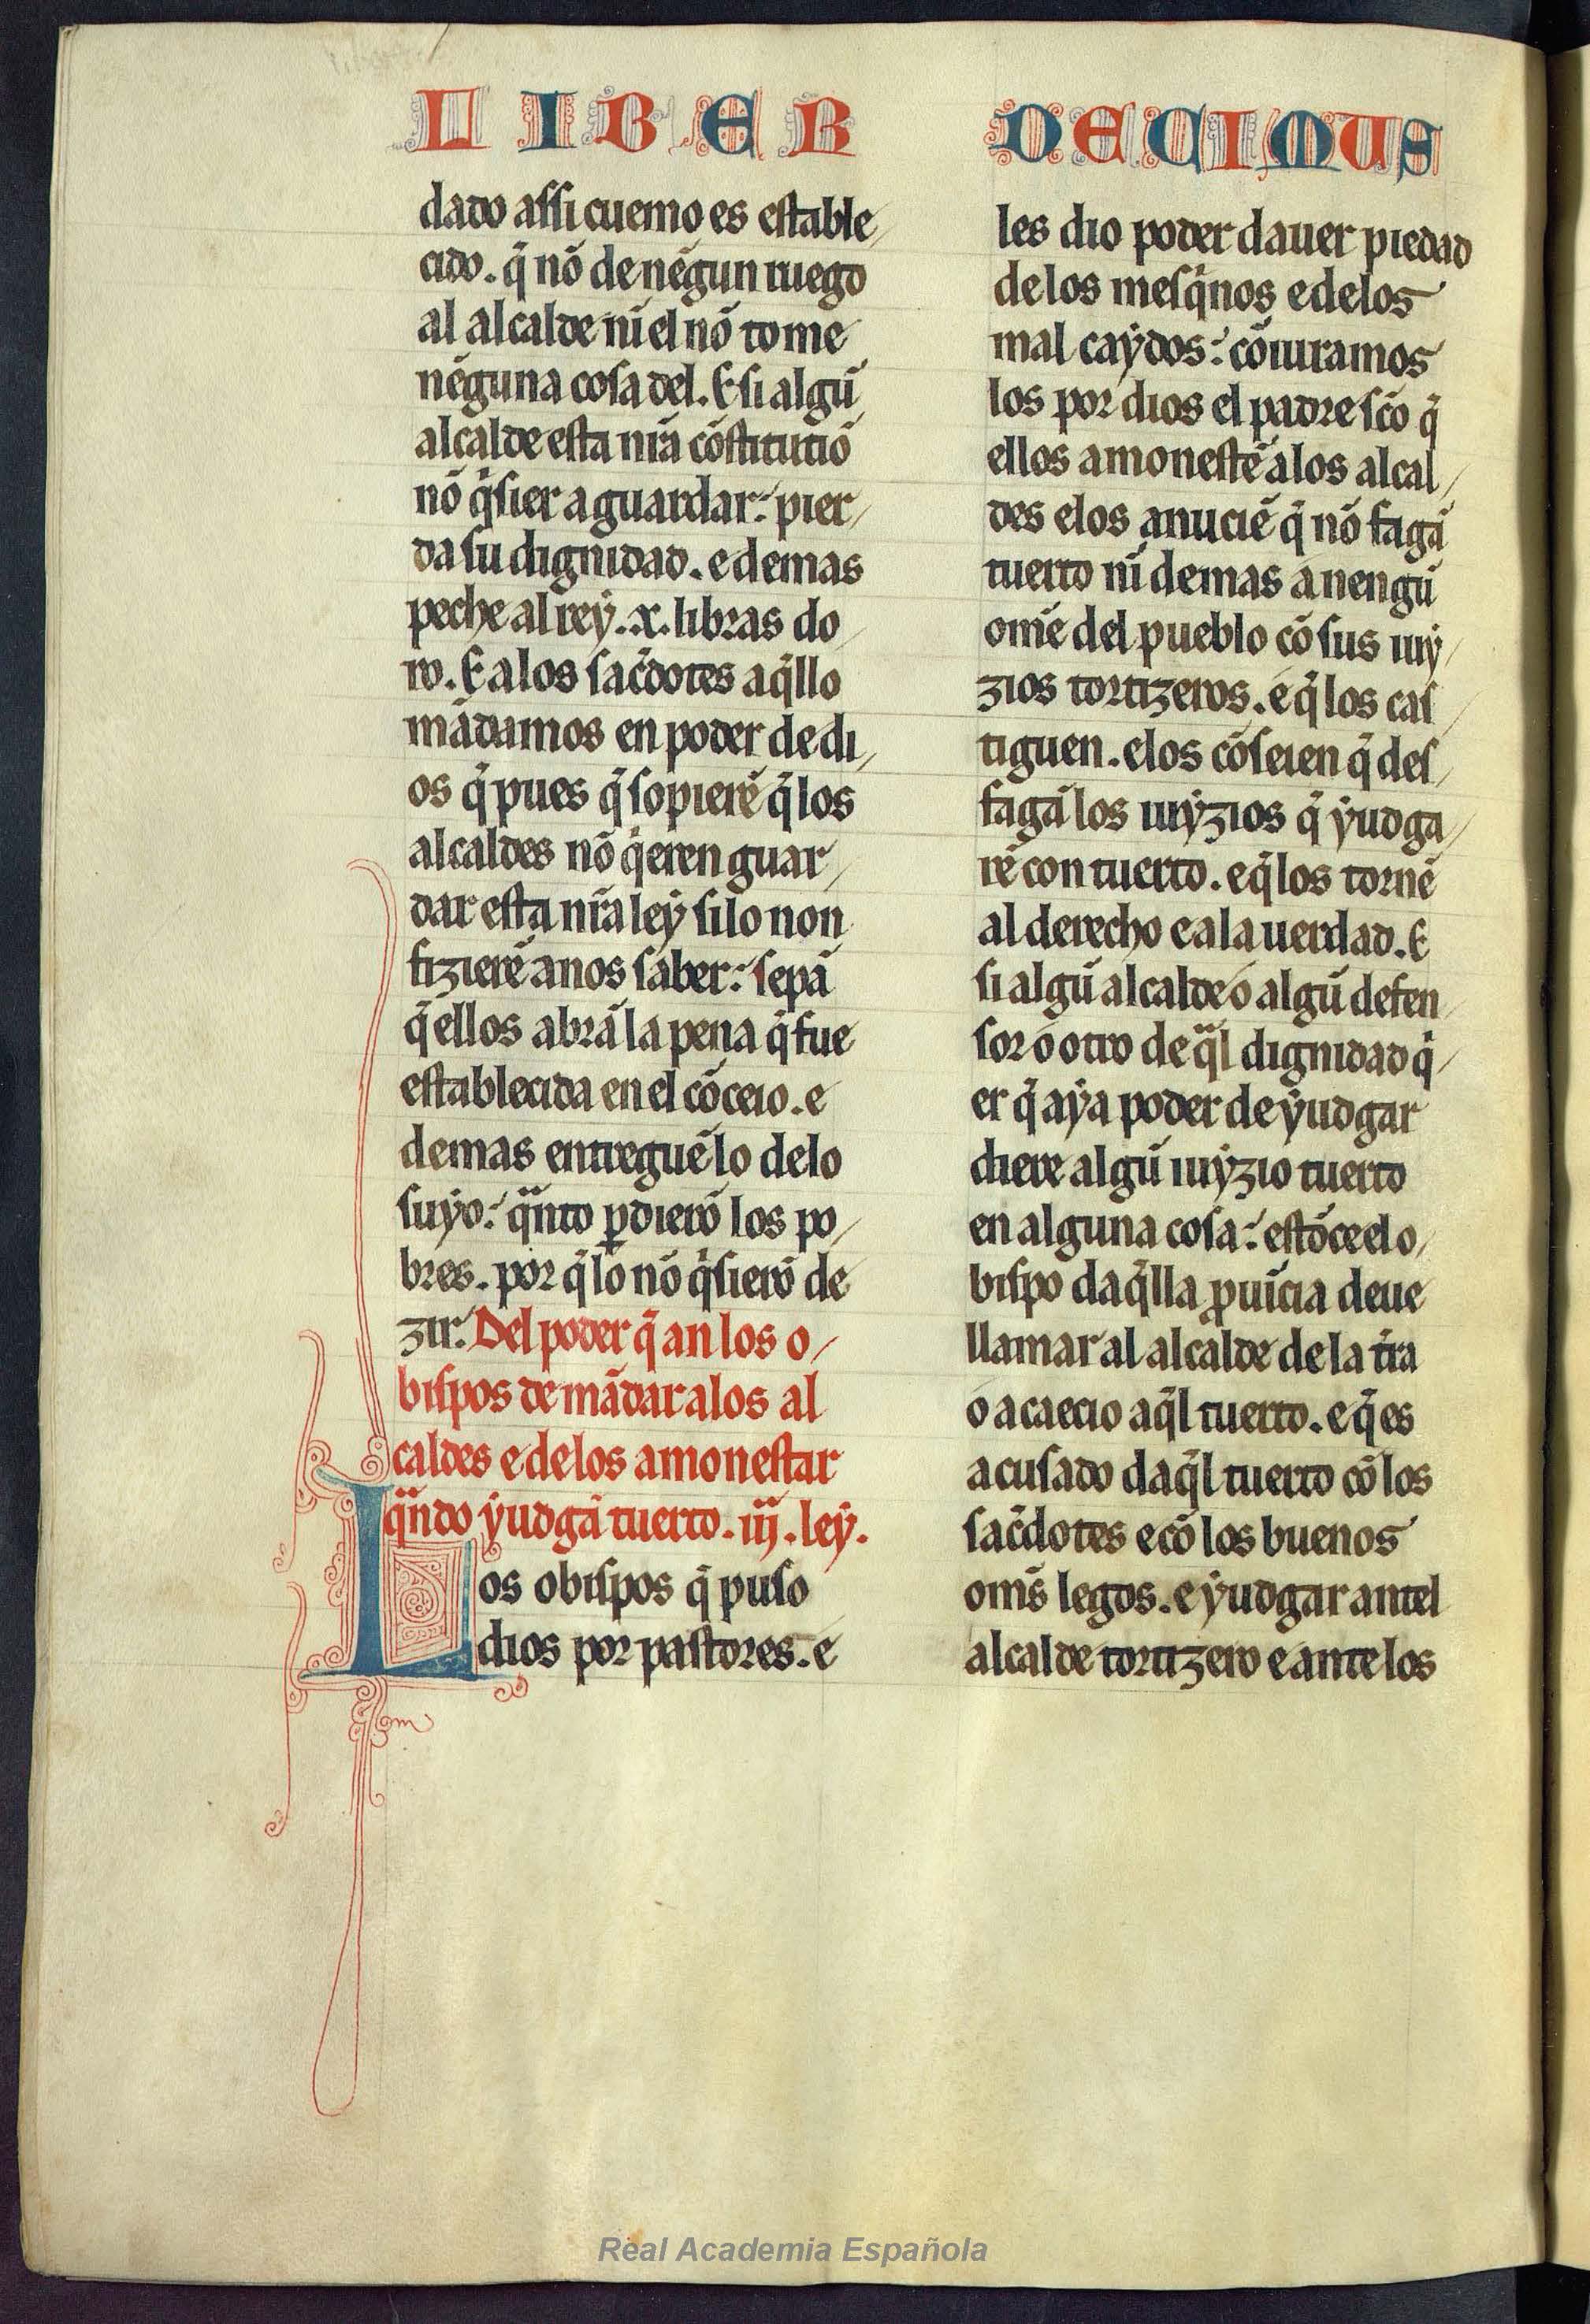 LIBER DECIMUS
dado assi cuemo es estable/
cido. q̃ nõ de nẽgun ruego
al alcalde nĩ el nõ tome
nẽguna cosa del. E si algũ
alcalde esta nr̃a cõstitutiõ
nõ q̃sier aguardar: pier/
da su dignidad. e demas
peche al rey. .x. libras do/
ro. E a los sac̃dotes aq̃llo
mãdamos en poder de di/
os q̃ pues q̃ sopierẽ q̃ los
alcaldes nõ q̃eren guar/
dar esta nr̃a ley si lo non
fizierẽ a nos saber: sepã
q̃ ellos abrã la pena q̃ fue
establecida en el cõceio. e
demas entreguẽ lo de lo
suyo: q̃nto ꝑdierõ los po/
bres. por q̃ lo nõ q̃sierõ de
zir. Del poder q̃ an los o/
bispos de mãdar a los al
caldes e de los amonestar
q̃ndo yudgã tuerto. iij. ley.
Los obispos q̃ puso
dios por pastores. e
les dio poder dauer piedad
de los mesq̃nos e de los
mal caydos: cõiuramos
los por dios el padre sc̃o q̃
ellos amonestẽ a los alcal/
des e los anuciẽ q̃ nõ fagã
tuerto nĩ demas a nengũ
om̃e del pueblo cõ sus iuy/
zios tortizeros. e q̃ los cas/
tiguen. e los cõseien q̃ des/
fagã los iuyzios q̃ yudga/
rẽ con tuerto. e q̃ los tornẽ
al derecho e a la uerdad. E
si algũ alcalde o algũ defen/
sor o otro de q̃l dignidad q̃/
er q̃ aya poder de yudgar
diere algũ iuyzio tuerto
en alguna cosa: estõce el o/
bispo daq̃lla ꝓuĩcia deue
llamar al alcalde de la tr̃a
o acaecio aq̃l tuerto. e q̃ es
acusado daq̃l tuerto cõ los
sac̃dotes e cõ los buenos
om̃s legos. e yudgar antel
alcalde tortizero e ante los
Real Academia Española